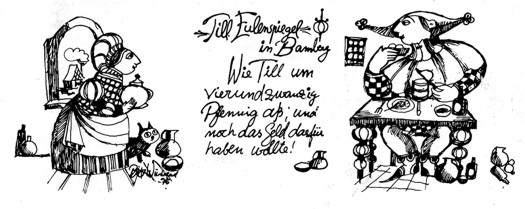 Till Eulenspiegel
in Bamberg
Wie Till um
vierundzwanzig
Pfennig aß, und
noch das Geld dafür
haben wollte!